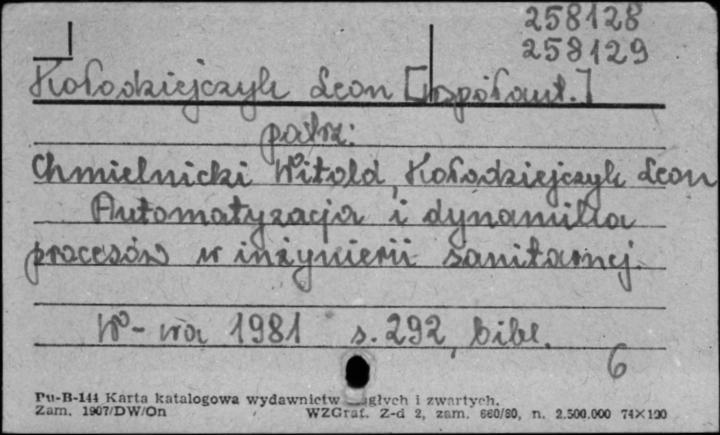 258128
258129
Kołodziejczyk Leon [współaut.]
patrz:
Chmielnicki Witold, Kołodziejczyk Leon
Automatyzacja i dynamika
procesów w inżynierii sanitarnej.
W-wa 1981 s. 292, bibl.
6
Pu-B-144 Karta katalogowa wydawnictw ciągłych i zwartych.
Zam. 1907/DW/On WZGraf. Z-d 2, zam. 660/80, n. 2.500.000 74×120